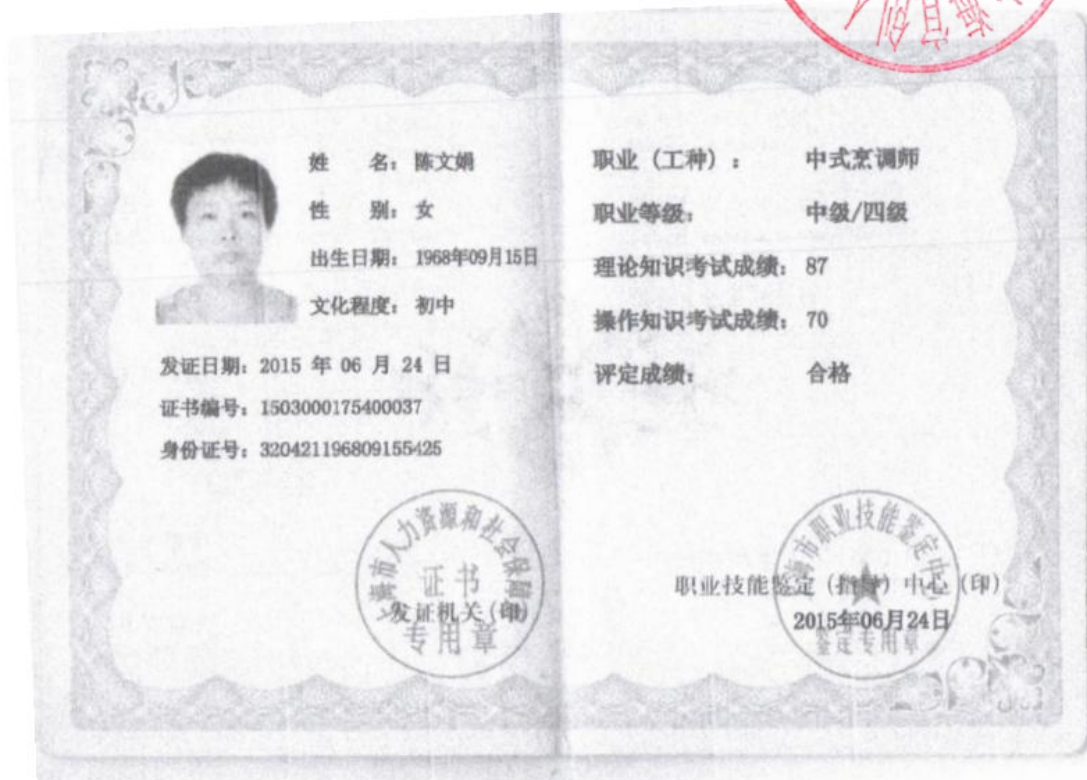 姓 名：陈文娟
性 别：女
出生日期：1968年09月15日
文化程度：初中
发证日期：2015 年 06 月 24 日
证书编号：1503000175400037
身份证号：320421196809155425
上海市人力资源和社会保障局
证书
发证机关(印)
专用章
职业（工种）： 中式烹调师
职业等级： 中级/四级
理论知识考试成绩：87
操作知识考试成绩：70
评定成绩： 合格
上海市职业技能鉴定中心
职业技能鉴定（指导）中心(印)
2015年06月24日
鉴定专用章